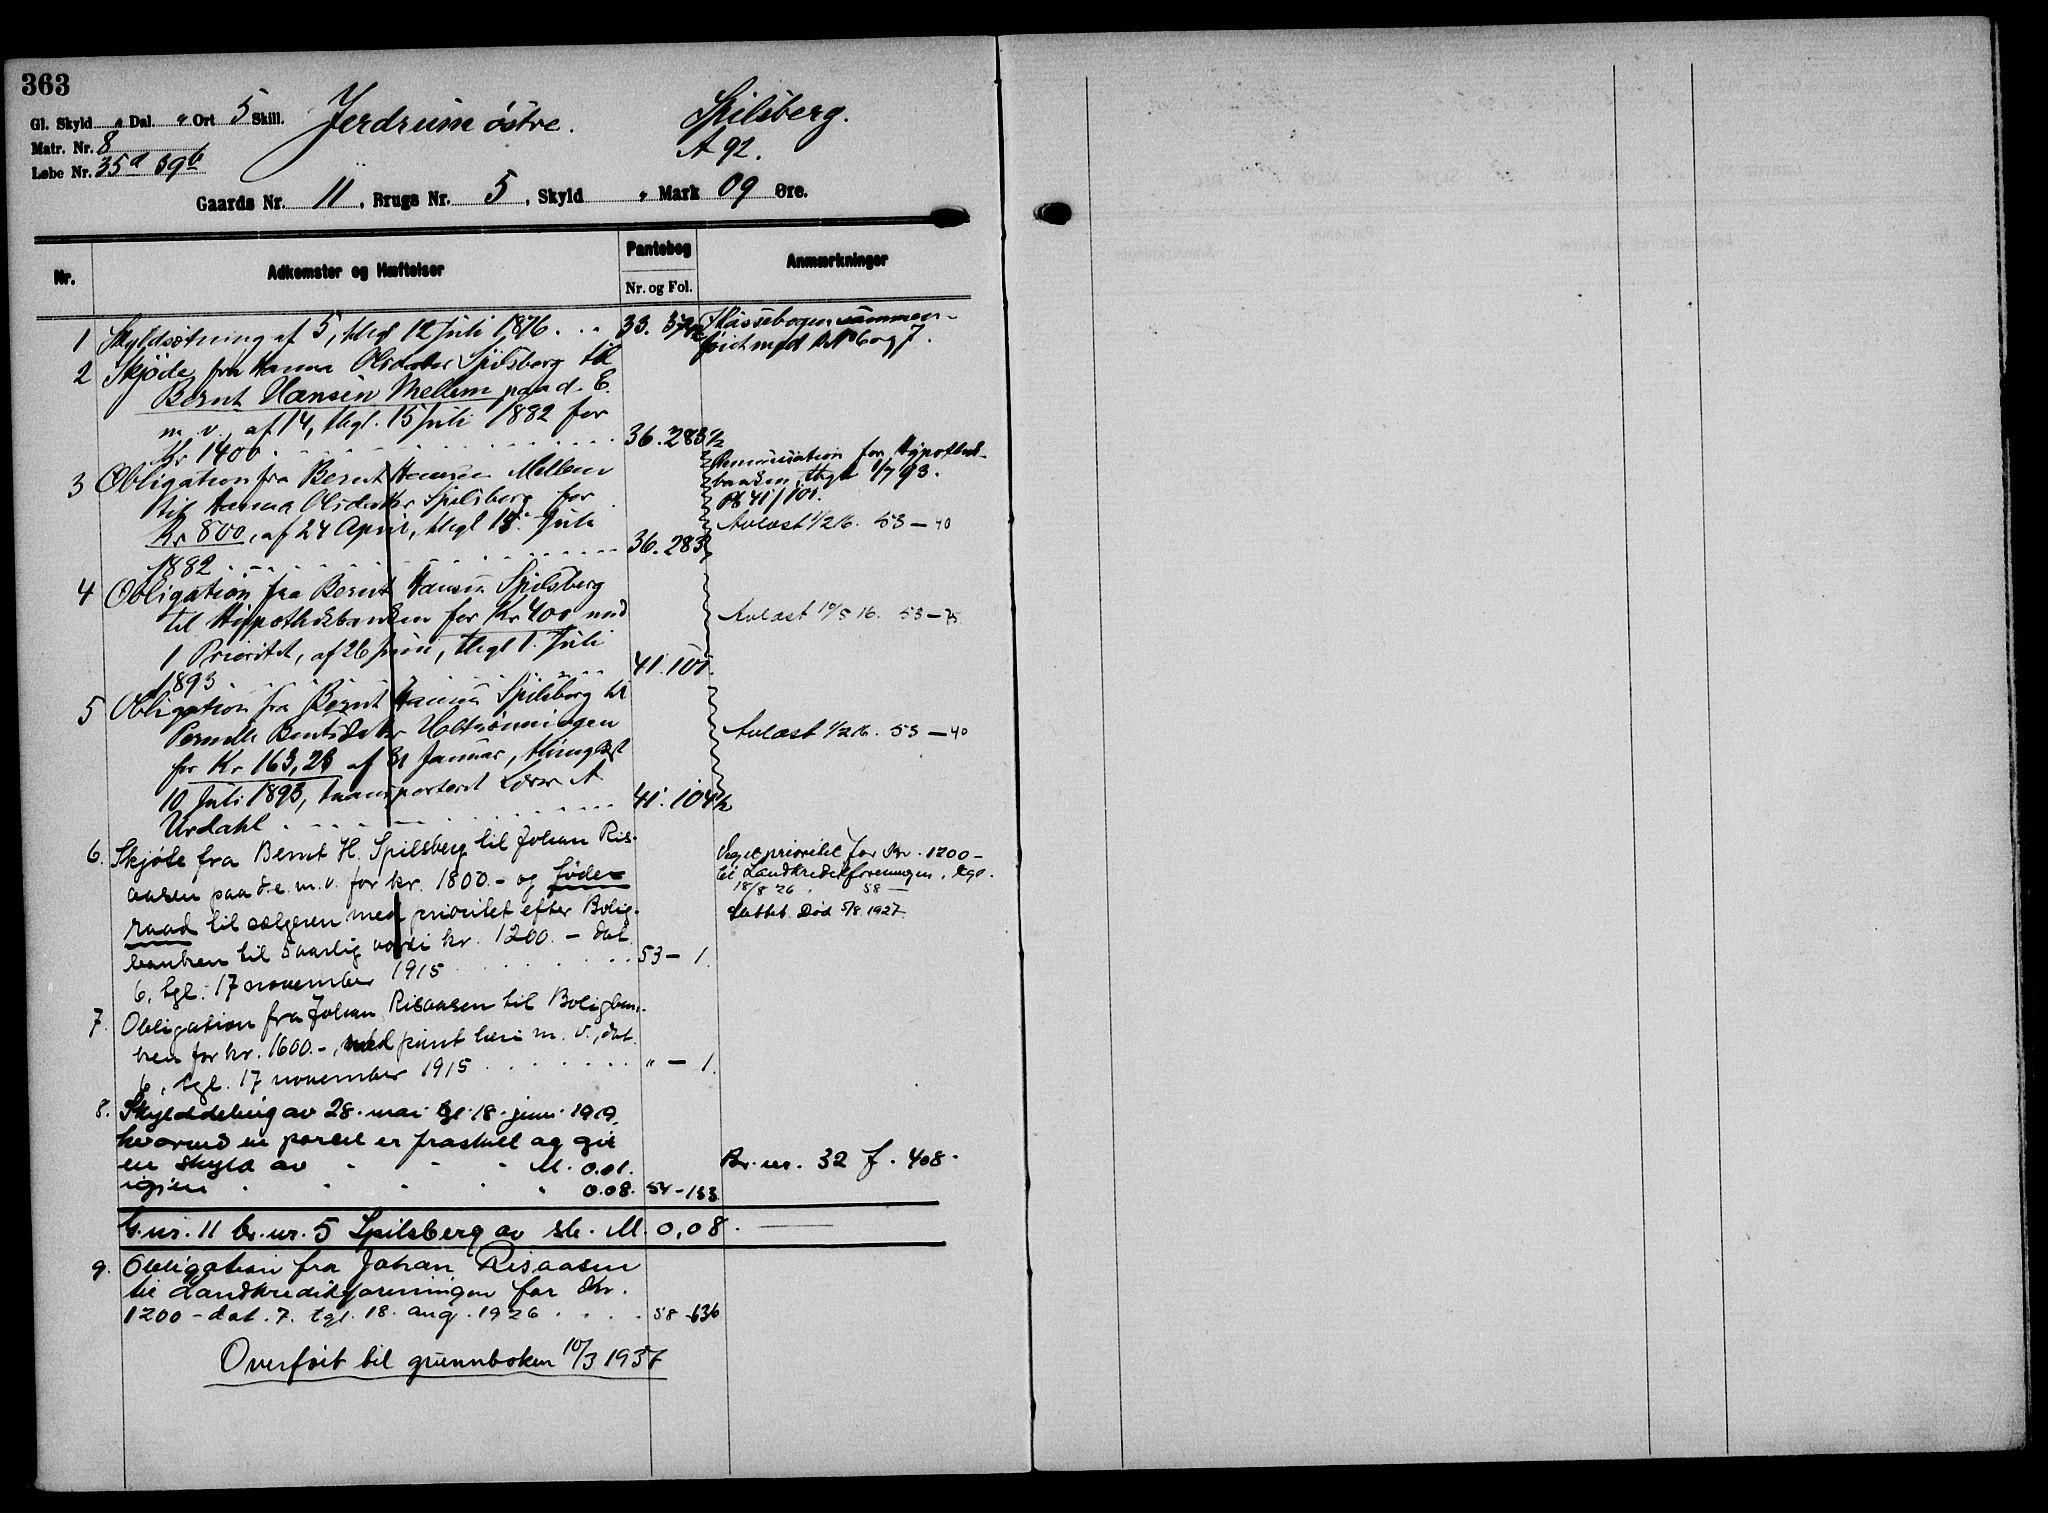 363
Gl. Skyld " Dal. " Ort 5 Skill.
Matr. Nr. 8
Løbe Nr. 35a 39b
Jerdrum østre.
Spilsberg.
A 92.
Gaards Nr. 11, Brugs Nr. 5, Skyld " Mark 09 Øre.
Nr.
Adkomster og Hæftelser
Pantebog
Nr. og Fol.
Anmærkninger
1 Skyldsætning af 5, thgl 12 Juli 1876. . . 33.
2 Skjøde fra Hanna Olsdatter Spilsberg til
Bernt Hansen Mellem paa d. E.
m. v., af 14, thgl. 15 Juli 1882 for
Kr 1400 . . . 36. 283½
3 Obligation fra Bernt Hansen Mellem
til Hanna Olsdatter Spilsberg for
Kr 800, af 24 April, thgl 15. Juli
1882 . . . 36. 283
Renunciation for Hypothek-
banken, thgl 1/7 93.
Pb 41/101.
Avlæst 1/2 16. 53 – 40
4 Obligation fra Bernt Hansen Spilsberg
til Hypothekbanken for Kr 400 med
1 Prioritet, af 26 Juni, thgl 1. Juli
1893 . . . 41. 101.
Avlæst 10/5 16. 53 – 75
5 Obligation fra Bernt Hansen Spilsberg til
Pernille Berntsdatter
for Kr 163,23 af 31 Januar, thinglæst
10 Juli 1893, transporteret Lærer A
Urdahl . . . 41. 104½
Avlæst 1/2 16. 53 – 40
6. Skjøte fra Bernt H. Spilsberg til Johan Ris-
aasen paa d. e. m. v. for kr. 1800.- og føde-
raad til sælgeren med prioritet efter Bolig-
banken til 5 aarlig værdi kr. 1200.- dat.
6, tgl. 17 november 1915 . . . 53 – 1.
Veget prioritet for kr. 1200 –
til Landkreditforeningen, tgl.
18/8 26 58 —
Slettet. Død 5/8 1927.
7. Obligation fra Johan Risaasen til Boligban-
ken for kr. 1600.-, med pant heri m. v., dat.
6, tgl. 17 november 1915 . . . " – 1.
8. Skylddeling av 28. mai tgl 18. juni 1919,
hvorved en parcel er fraskilt og git
en skyld av " " " M. 0.01.
igjen " " " " 0.08. 54 – 133
Br. nr. 32 f. 408.
G. nr. 11 br. nr. 5 Spilsberg av sk. M. 0,08.
9. Obligation fra Johan Risaasen
til Landkreditforeningen for kr.
1200 – dat. 7. tgl. 18. aug. 1926 . . . 58 – 636
Overført til grunnboken 10/3 1937